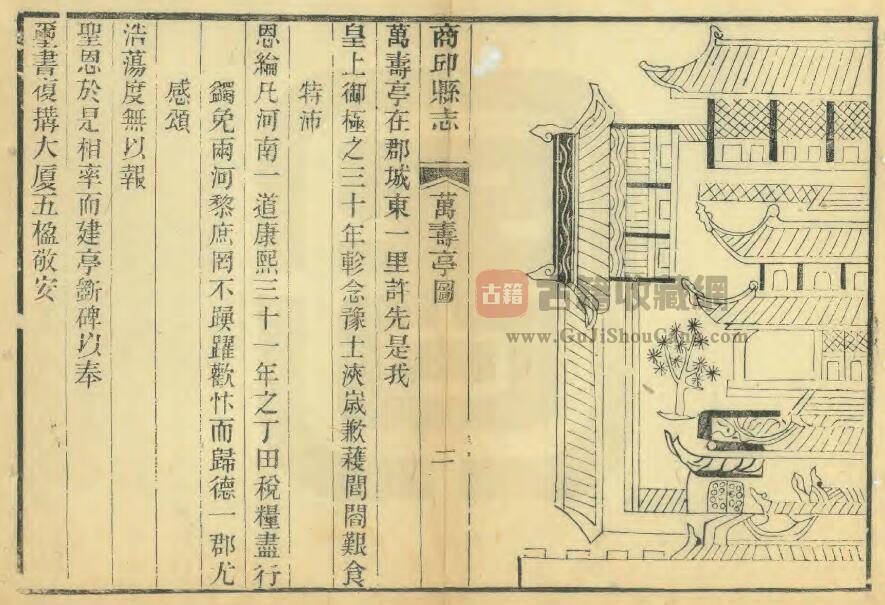 商邱縣志
萬壽亭圖
二
萬壽亭在郡城東一里許先是我
皇上御極之三十年軫念豫土浹歲歉穫閭閻艱食
特沛
恩綸凡河南一道康熙三十一年之丁田稅糧盡行
蠲免兩河黎庶罔不踴躍歡忭而歸德一郡尤
感頌
浩蕩度無以報
聖恩於是相率而建亭斵碑以奉
璽書復搆大厦五楹敬安
古籍
古籍收藏網
www.GuJiShouCang.com